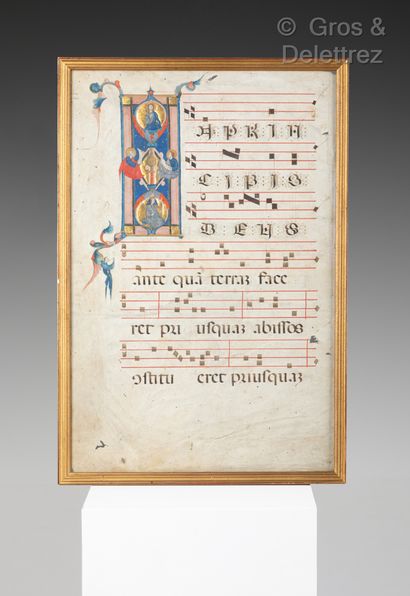 © Gros &
Delettrez
IN PRIN
CIPIO
DEUS
ante quã terraz face
ret pri usquaz abissos
ɔstitu eret priusquaz